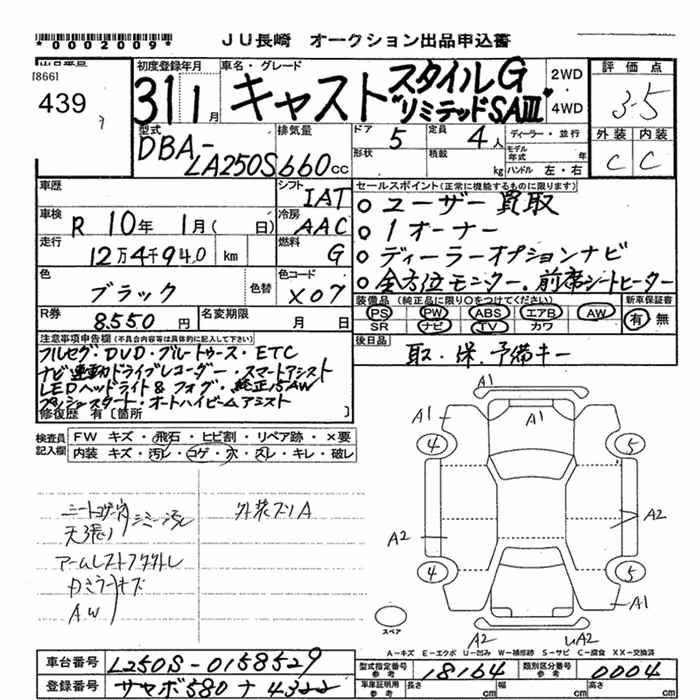 *0002009*
JU長崎 オークション出品申込書
[866]
439
初度登録年月
31 1月
車名・グレード
キャスト スタイルG
"リミテッドSAⅢ"
2WD
4WD
評価点
3.5
外装 内装
C C
型式
DBA-
LA250S
排気量
660cc
ドア
5
定員
4人
形状
積載
kg
ディーラー・並行
モデル年式 年
ハンドル 左・右
車歴
シフト
IAT
車検
R 10年 1月( 日)
冷房
AAC
走行
12万4千940 km
燃料
G
色
ブラック
色替
色コード
X07
R券
8,550円
名変期限
月 日
セールスポイント(正常に機能するものに限ります)
○ユーザー買取
○1オーナー
○ディーラーオプションナビ
○全方位モニター・前席シートヒーター
装備品(純正品に限り○をつけてください)
PS PW ABS エアB AW
SR ナビ TV カワ
新車保証書
有 無
後日品
取・保・予備キー
注意事項申告欄(不具合内容等は具体的に記入して下さい)
フルセグ・DVD・ブルートゥース・ETC
ナビ連動ドライブレコーダー・スマートアシスト
LEDヘッドライト&フォグ・純正15AW
プッシュスタート・オートハイビームアシスト
修復歴 有〔箇所 〕
検査員記入欄
FW キズ・飛石・ヒビ割・リペア跡・×要
内装 キズ・汚レ・コゲ・穴・スレ・キレ・破レ
天張り
シミ・汚レ
外装スリA
A1
A1
A1
4
5
A2
A2
4
5
A1
A2
スペア
A-キズ E-エクボ U-凹み W-補修跡 S-サビ C-腐食 XX-交換済
車台番号
LA250S-0158529
登録番号
型式指定番号
参考
18164
類別区分番号
参考
0004
車庫証明用
参考
長さ
cm
幅
cm
高さ
cm